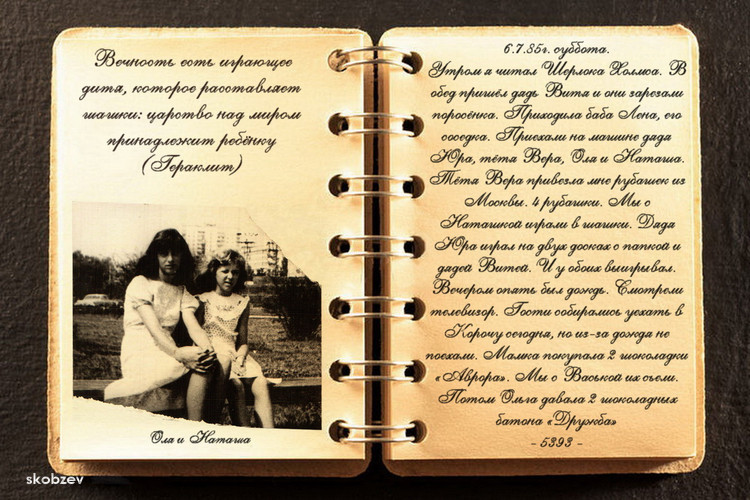 Вечность есть играющее
дитя, которое расставляет
шашки: царство над миром
принадлежит ребёнку
(Гераклит)
Оля и Наташа
6.7.85г. суббота.
Утром я читал Шерлока Холмса. В
обед пришёл дядь Витя и они зарезали
поросёнка. Приходила баба Лена, его
соседка. Приехали на машине дядя
Юра, тётя Вера, Оля и Наташа.
Тётя Вера привезла мне рубашек из
Москвы. 4 рубашки. Мы с
Наташкой играли в шашки. Дядя
Юра играл на двух досках с папкой и
дядей Витей. И у обоих выигрывал.
Вечером опять был дождь. Смотрели
телевизор. Гости собирались уехать в
Корочу сегодня, но из-за дождя не
поехали. Мамка покупала 2 шоколадки
«Аврора». Мы с Васькой их съели.
Потом Ольга давала 2 шоколадных
батона «Дружба»
- 5393 -
skobzev